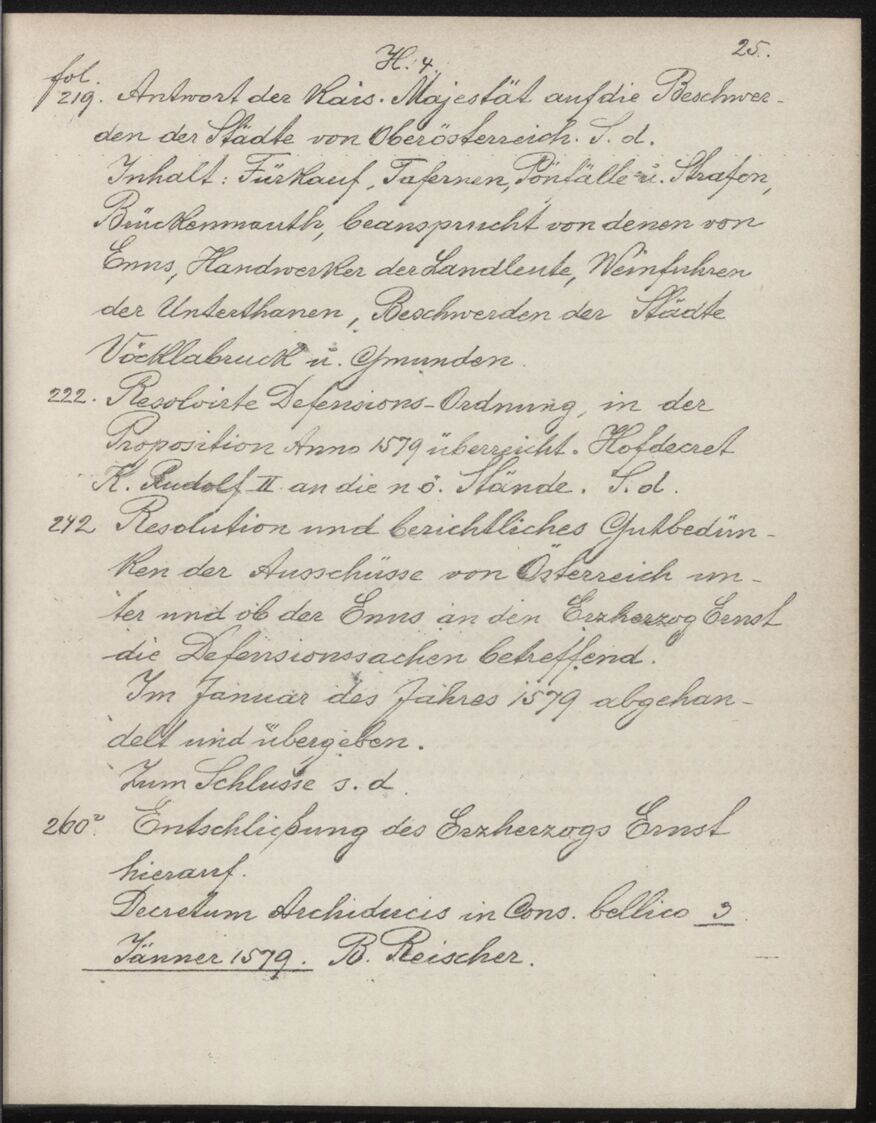 H. 4. 25.
fol.
219. Antwort der Kais. Majestät auf die Beschwer-
den der Städte von Oberösterreich. S. d.
Inhalt: Fürkauf, Tafernen, Pönfälle u. Strafen,
Brückenmauth, beansprucht von denen von
Enns, Handwerker der Landleute, Weinfuhren
der Unterthanen, Beschwerden der Städte
Vöcklabruck u. Gmunden.
222. Resolvirte Defensions-Ordnung, in der
Proposition Anno 1579 überreicht. Hofdecret
K. Rudolf II. an die n. ö. Stände. S. d.
242 Resolution und berichtliches Gutbedün-
ken der Ausschüsse von Österreich un-
ter und ob der Enns an den Erzherzog Ernst
die Defensionssachen betreffend.
Im Januar des Jahres 1579 abgehan-
delt und übergeben.
Zum Schlusse s. d.
260² Entschließung des Erzherzogs Ernst
hierauf.
Decretum Archiducis in Cons. bellico 3
Jänner 1579. B. Reischer.